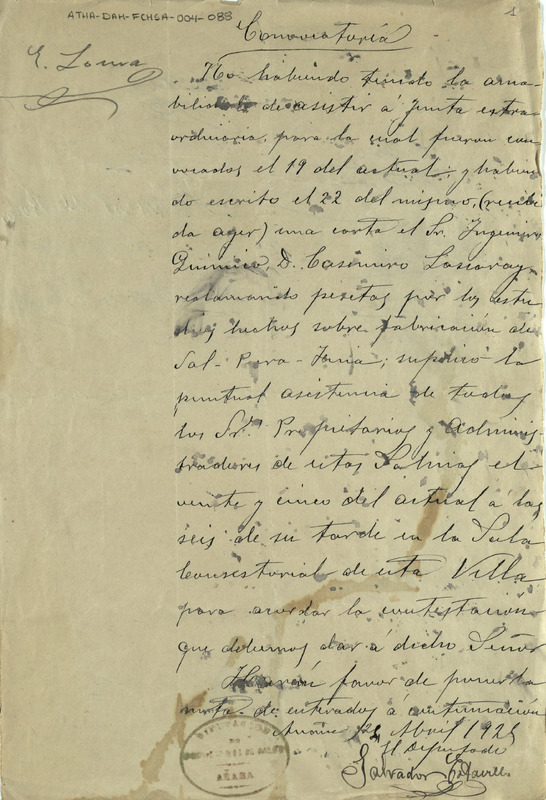 ATHA-DAH-FCHSA-004-088
1
Convocatoria
E. Loma
No habiendo tenido la ama-
bilidad de asistir a Junta extra-
ordinaria, para la cual fueron con-
vocados el 19 del actual; y habien-
do escrito el 22 del mismo, (recibi-
da ayer) una carta el Sr. Ingeniero
Quimico, D. Casimiro
reclamando pesetas por los estu-
dios hechos sobre fabricación de
Sal-Pura-Fina; suplico la
puntual asistencia de todos
los Sres. Propietarios y Adminis-
tradores de estas Salinas el
veinte y cinco del actual a las
seis de su tarde en la Sala
Consistorial de esta Villa
para acordar la contestación
que debemos dar á dicho Señor
Harán favor de poner la
nota de enterados á continuación
Añana Abril 1925
El Diputado
Salvador
AÑANA